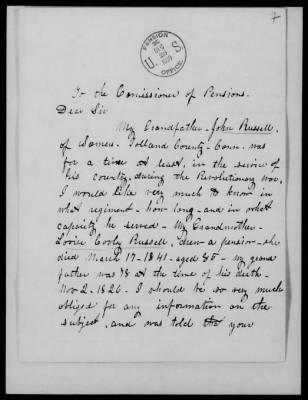 7
PENSION
DEC
23
1899
OFFICE
U S
To the Comissioner of Pensions.
Dear Sir
My Grandfather - John Russell,
of Somers. Tolland County - Conn. was
for a time at least, in the servise of
his country - during the Revolutionary war,
I would like very much to know in
what regiment - how long - and in what
capacity he served - My Grandmother -
Cooly Russell, drew a pension - she
died March 17 - 1841 - aged 85 - my grand
father was 78 at the time of his death -
Nov 2 - 1826 - I should be so very much
obliged for any information on the
subject, and was told tha your